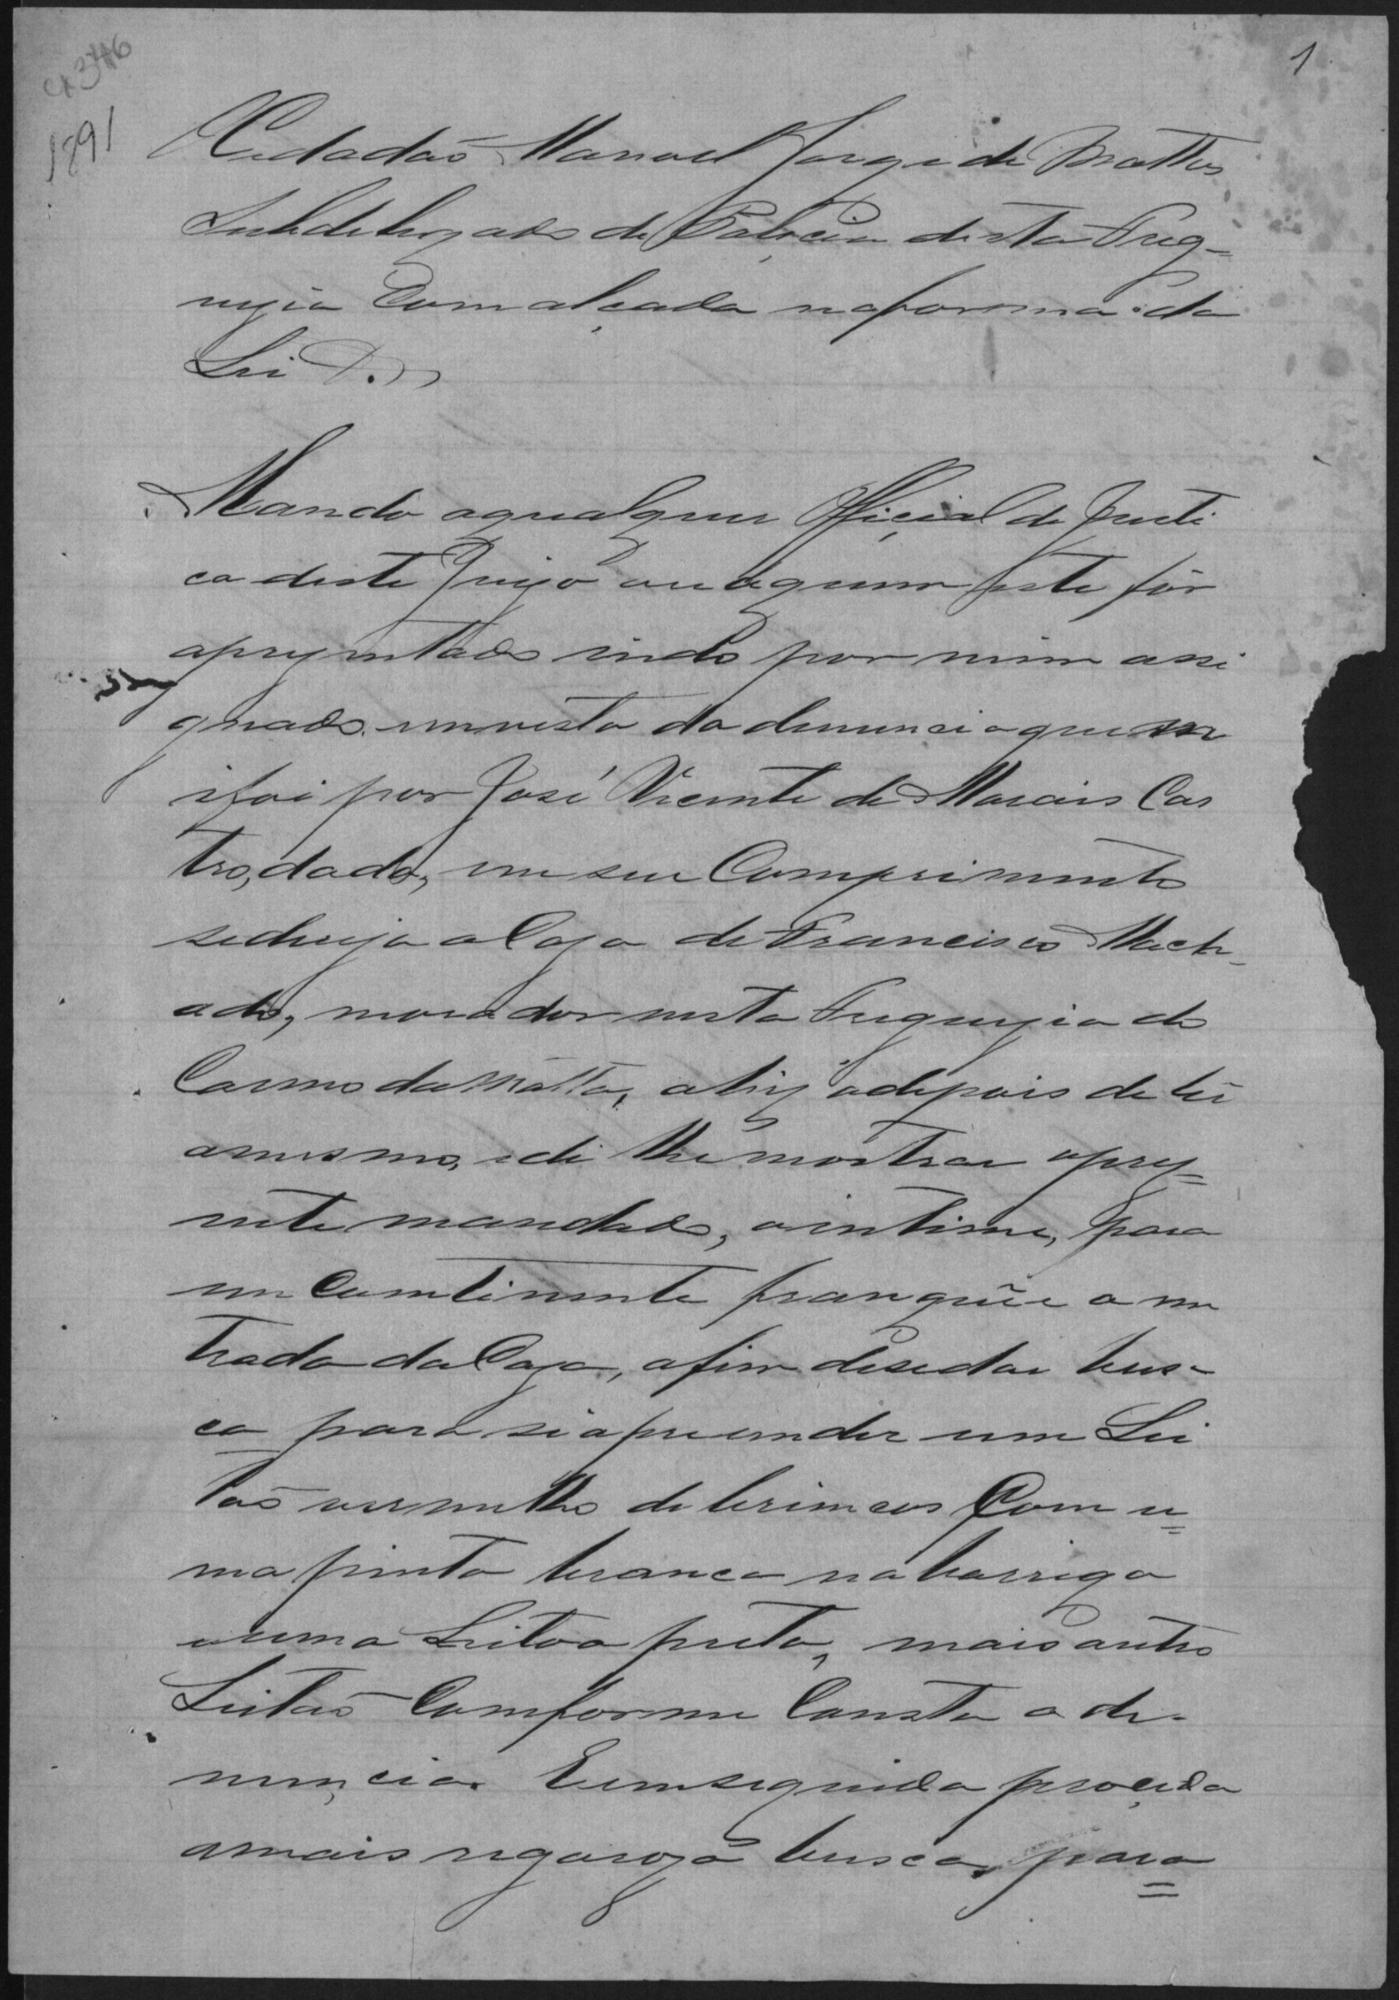 1
4346
1891
Cidadaõ Manoel Jorge de Mattos
Subdelegado de Policia desta Freg-
uezia Com alçada na forma da
Lei &.
Mando aqualquer Official de Justi
ca deste Juizo ou aquem este fôr
aprezentado indo por mim assi
gnado em vista da denuncia que me
foi por José Vicente de Morais Cas
tro, dada, em seu Comprimento
sedirija a Caza de Francisco Mach-
ado, morador nesta Freguezia do
Carmo da Matta, ahi, e depois de lêr
omesmo, e de lhe mostrar oprez=
ente mandado, o intime, para
em Comtinente franquêe a en
trada da Caza, afim de se dar bus-
ca para si aprehender um Lei
taõ vermelho de brincos Com u=
ma pinta branca na barriga
e uma Leitoa preta, mais outro
Leitaõ Comforme Consta a de-
nuncia. Eemseguida proceda
amais rigoroza busca, para=